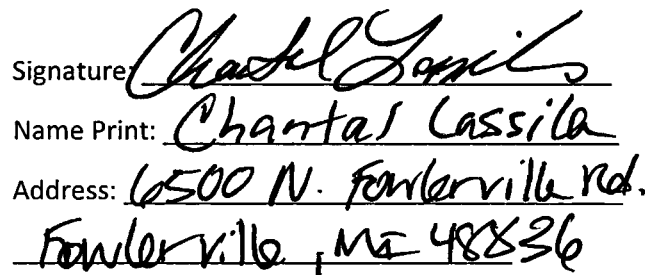 Signature: Chantal Lassila
Name Print: Chantal Lassila
Address: 6500 N. Fowlerville Rd.
Fowlerville, MI 48836